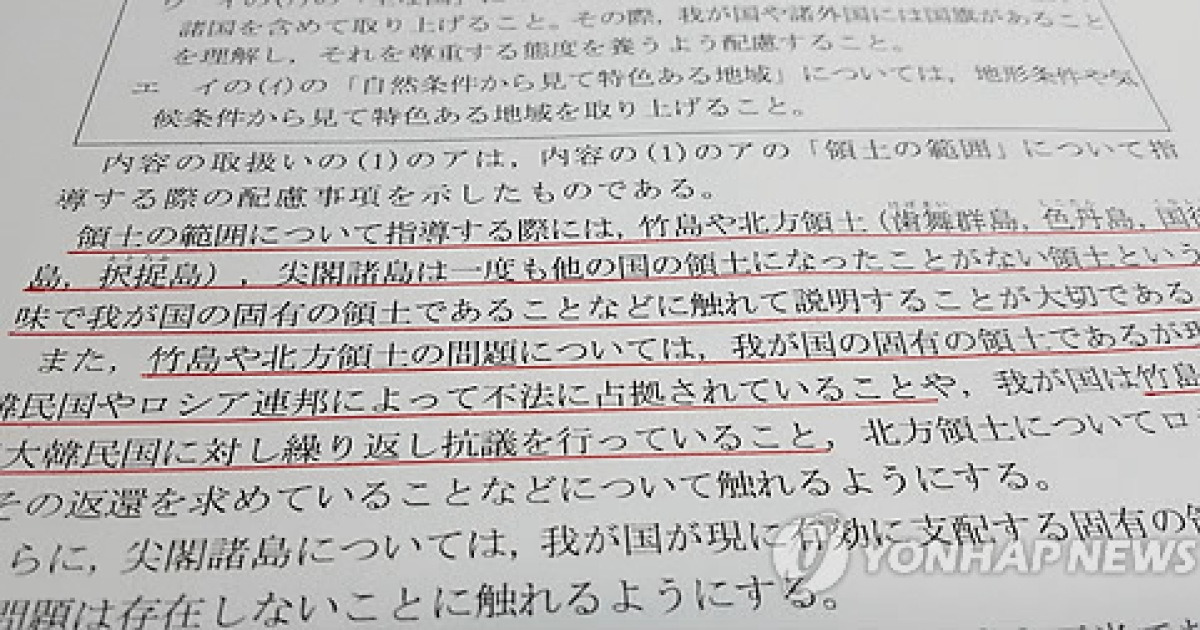 諸国を含めて取り上げること。その際，我が国や諸外国には国旗があること
を理解し，それを尊重する態度を養うよう配慮すること。
エ イの(イ)の「自然条件から見て特色ある地域」については，地形条件や気
候条件から見て特色ある地域を取り上げること。
内容の取扱いの(1)のアは，内容の(1)のアの「領土の範囲」について指
導する際の配慮事項を示したものである。
領土の範囲について指導する際には，竹島や北方領土（歯舞群島，色丹島，国
島，択捉島），尖閣諸島は一度も他の国の領土になったことがない領土という
味で我が国の固有の領土であることなどに触れて説明することが大切である
また，竹島や北方領土の問題については，我が国の固有の領土であるが現
韓民国やロシア連邦によって不法に占拠されていることや，我が国は竹島
大韓民国に対し繰り返し抗議を行っていること，北方領土についてロ
その返還を求めていることなどについて触れるようにする。
らに，尖閣諸島については，我が国が現に有効に支配する固有の領
問題は存在しないことに触れるようにする。
YONHAP NEWS